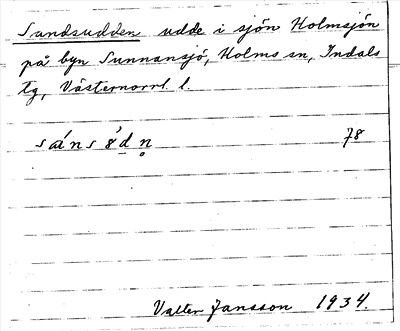 Sundsudden udde i sjön Holmsjön
på byn Sunnansjö, Holms sn, Indals
tg, Västernorrl. l.
78
Valter Jansson 1934.